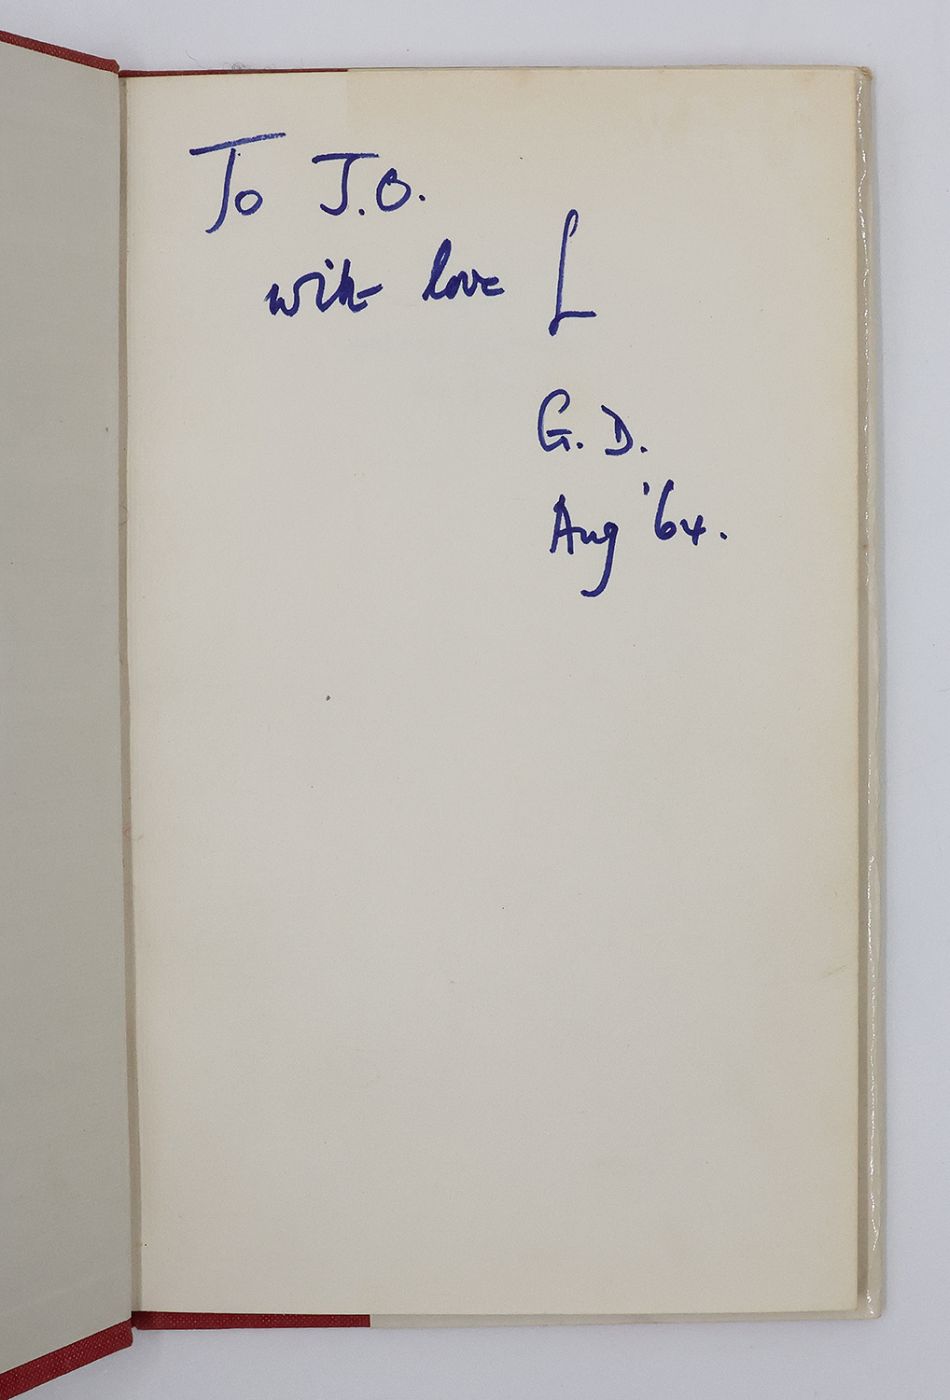 To J.O.
with love L
G.D.
Aug '64.